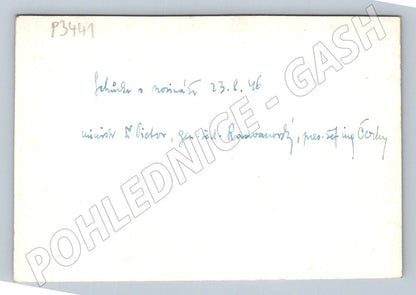 P3441
Schůzka s novináři 23.8.46
ministr Dr Pietor, gen. řed. , pres. šéf ing Černý
POHLEDNICE - GASH